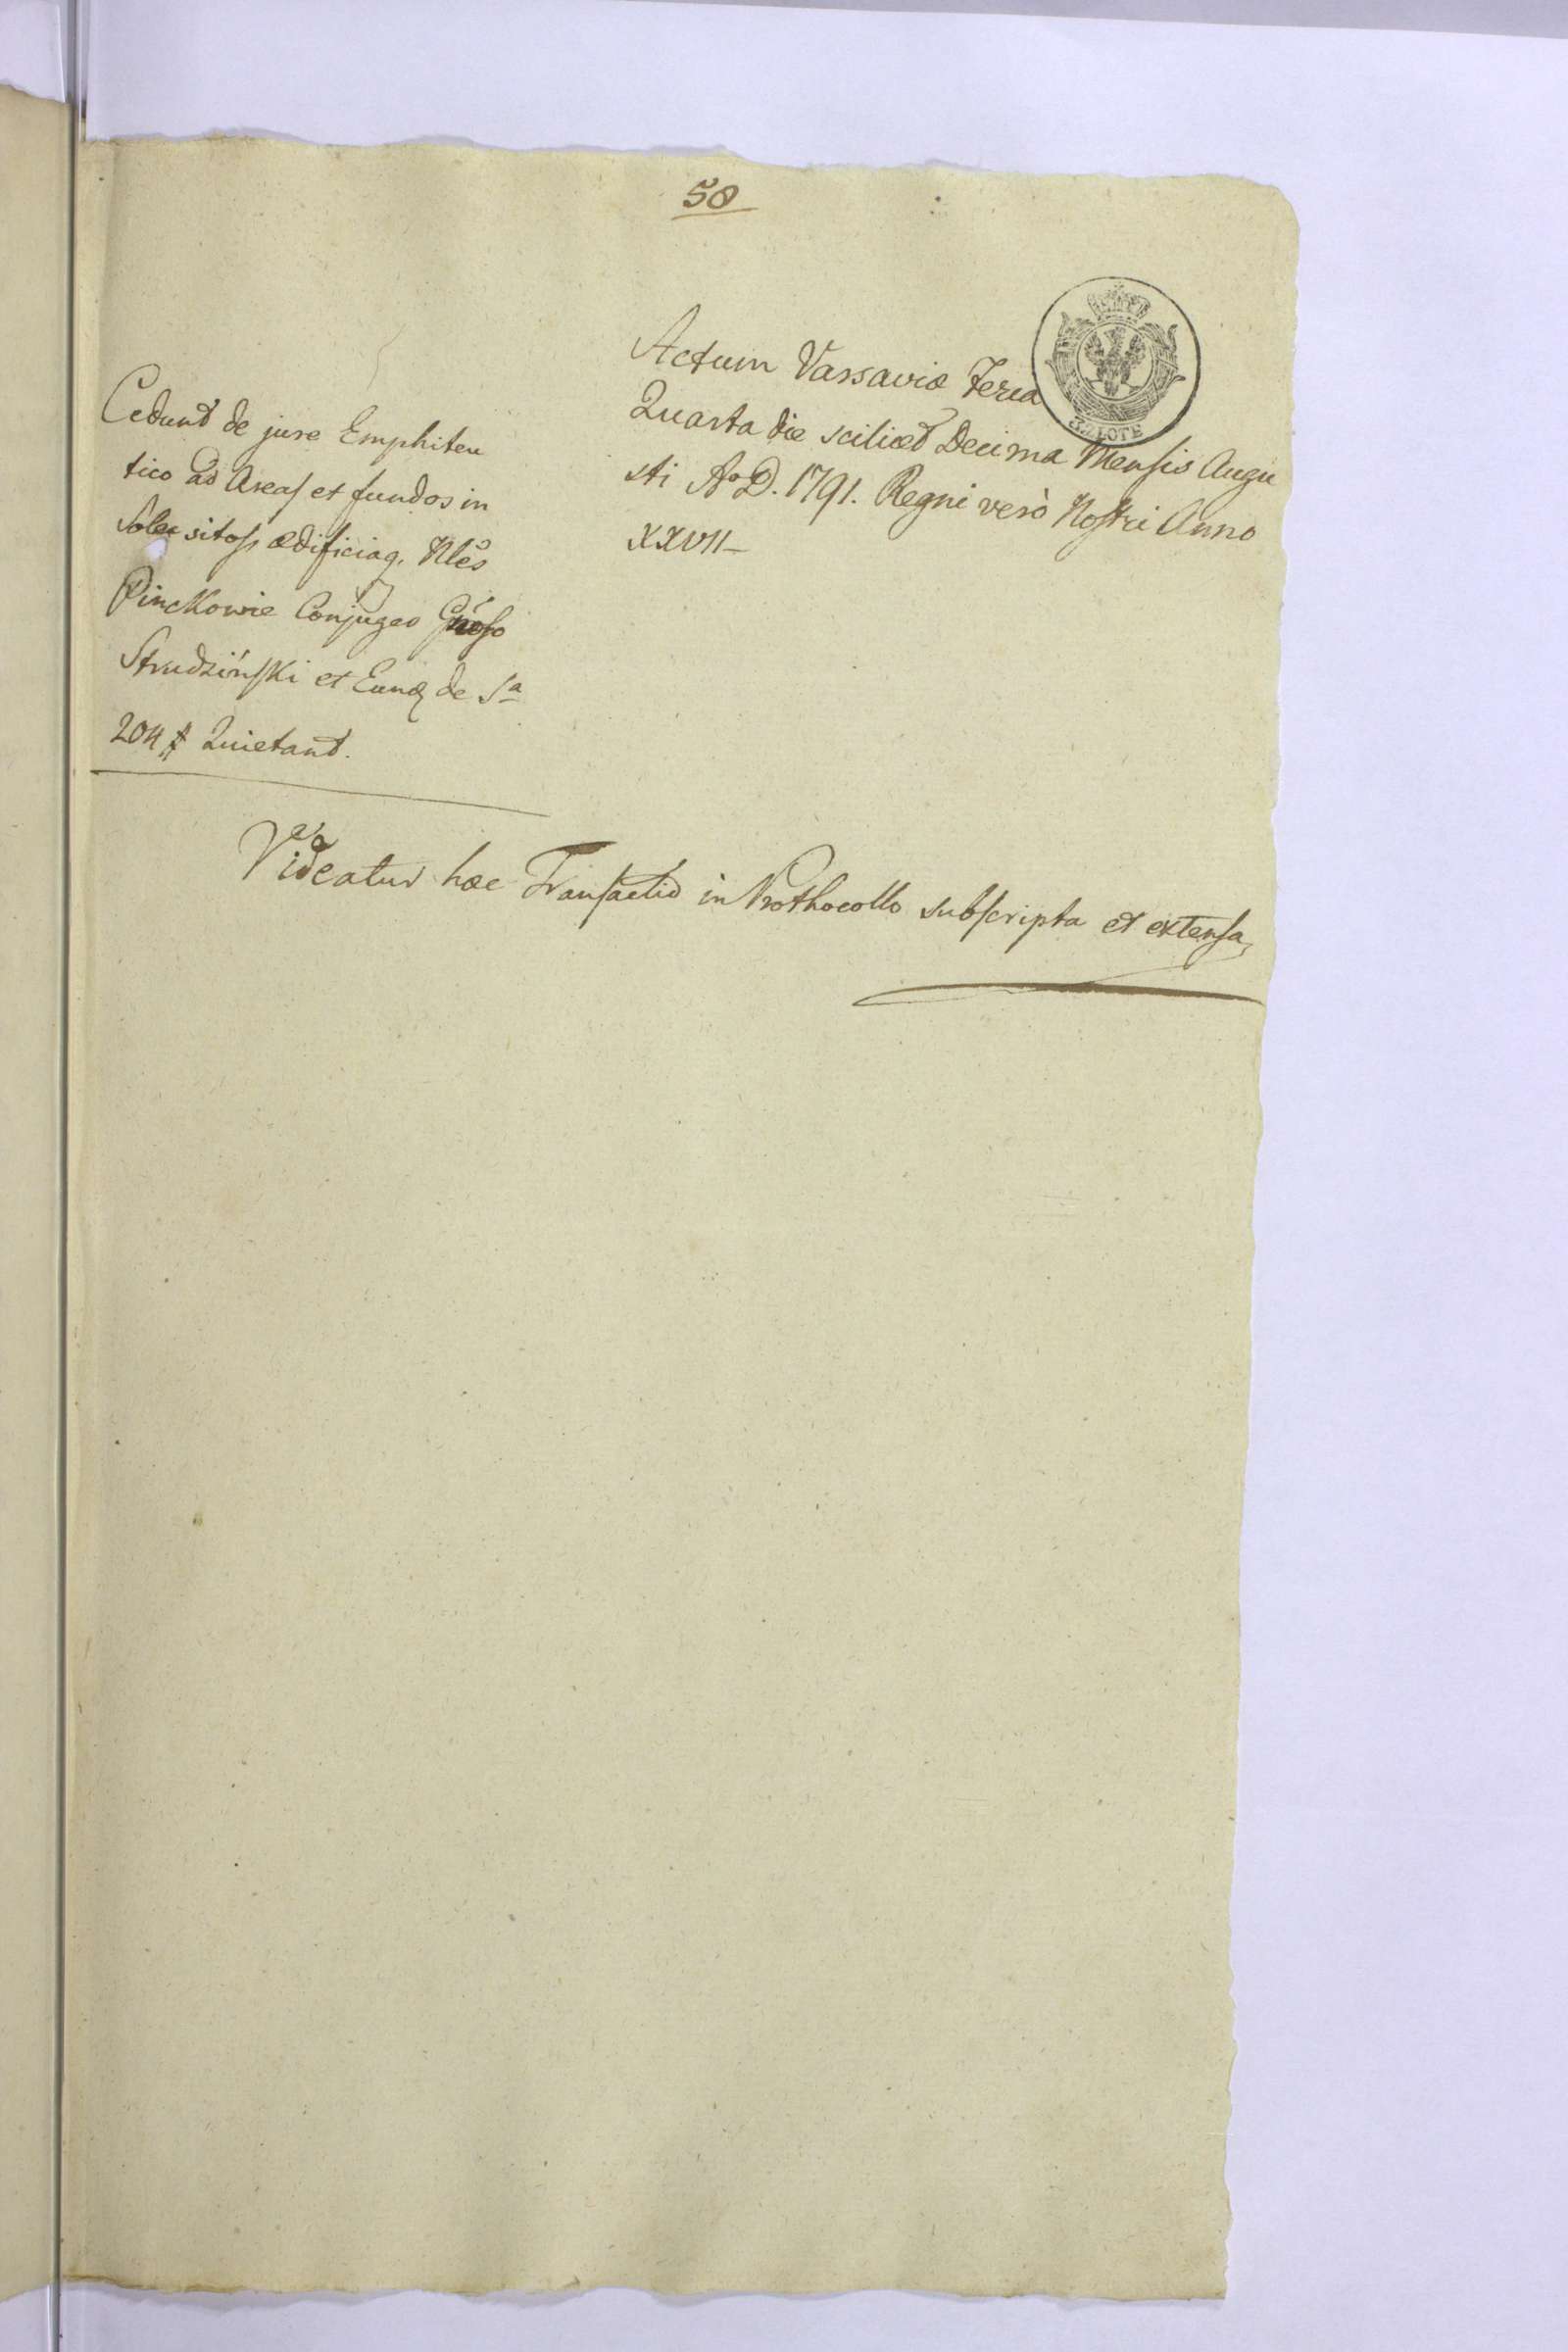 58
Actum Varsaviæ Feria
Quarta die scilicet Decima Mensis Augu
sti Ao D. 1791. Regni verò Nostri Anno
XXVII
3. ZŁOTE
Cedunt de jure Emphiteu
tico ad Areas et fundos in
Solec sitos ædificiaq,
Pinckowie Conjuges
Strudziński et Eund de Sa
204 # Quietant.
Videatur hæc Transactio in Prothocollo subscripta et extensa